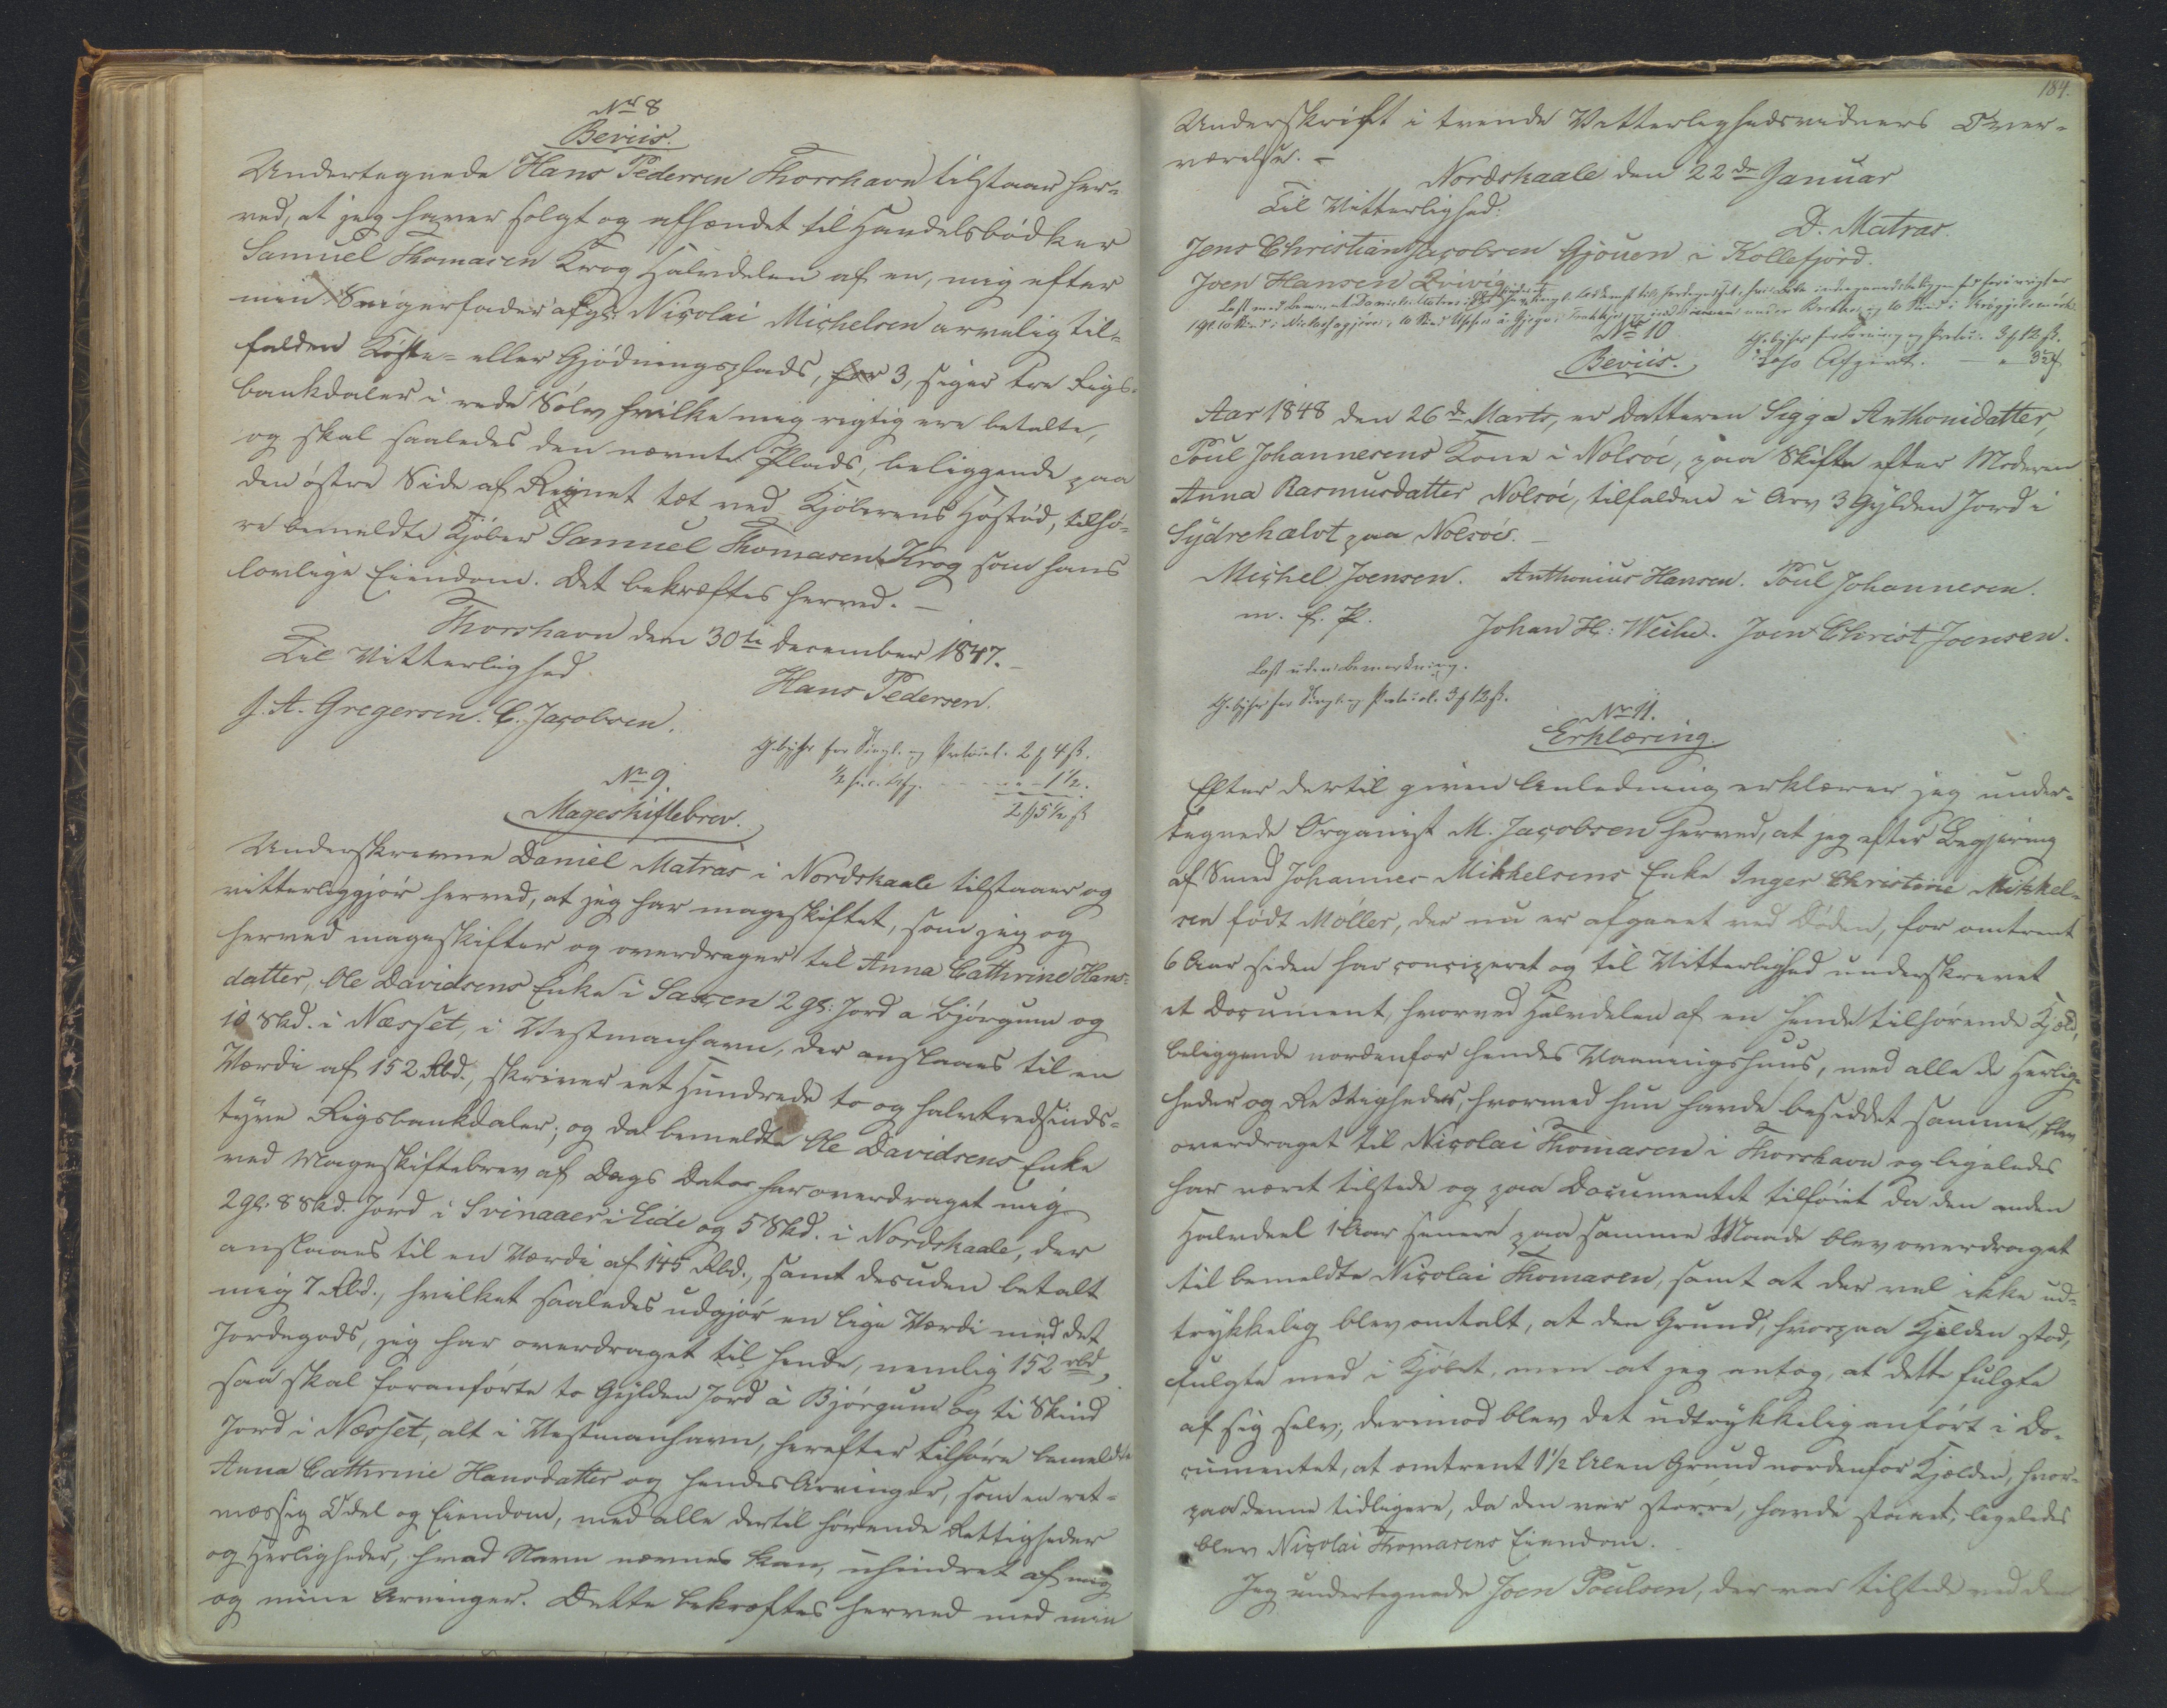 Nr 8
Beviis.
Undertegnede Hans Pedersen Thorshavn tilstaaer her-
ved, at jeg haver solgt og afhændet til Handelsbødker
Samuel Thomasen Krog Halvdelen af en, mig efter
min Svigerfader afgl. Nicolai Michelsen arvelig til-
falden Køste- eller Gjødningsplads, for 3, siger tre Rigs-
bankdaler i rede Sølv hvilke mig rigtig ere betalte,
og skal saaledes den nævnte Plads, beliggende paa
den østre Side af Reynet tæt ved Kjøberens , tilhø-
re bemeldte Kjøber Samuel Thomasen Krog som hans
lovlige Eiendom. Det bekræftes herved. –
Thorshavn den 30te December 1847. –
Til Vitterlighed.
Hans Pedersen.
J. A. Gregersen. C. Jacobsen.
Gebyhr for Tingl. og Protocol. 2 4 ß.
1/2 1 1/2.
2 5 1/2 ß
Nr 9.
Mageskiftebrev.
Underskrevne Daniel Matras i Nordskaale tilstaaer og
vitterliggjør herved, at jeg har mageskiftet, som jeg og
herved mageskifter og overdrager til Anna Cathrine Hans-
datter, Ole Davidsens Enke i Saxen 2 Gl. Jord a Bjørgum og
10 Skd. i Næsset, i Vestmanhavn, der anslaaes til en
Værdi af 152 Rbd., skriver eet Hundrede to og halvtredsinds-
tyve Rigsbankdaler; og da bemeldte Ole Davidsens Enke
ved Mageskiftebrev af Dags Dato har overdraget mig
2 Gl. 8 Skd. Jord i Svinaaer i Eide og 5 Skd. i Nordskaale, der
anslaaes til en Værdi af 145 Rbd., samt desuden betalt
mig 7 Rbd., hvilket saaledes udgjør en lige Værdi med det
Jordegods, jeg har overdraget til hende, nemlig 152 rbd,
saa skal foranførte to Gylden Jord à Bjørgum og ti Skind
Jord i Næsset, alt i Vestmanhavn, herefter tilhøre bemeldte
Anna Cathrine Hansdatter og hendes Arvinger, som en ret-
mæssig Odel og Eiendom, med alle dertil hørende Rettigheder
og Herligheder, hvad Navn nævnes kan, uhindret af mig
og mine Arvinger. Dette bekræftes herved med min
184.
Underskrift i tvende Vitterlighedsvidners Over-
værelse. –
Nordskaale den 22de Januar
Til Vitterlighed:
D. Matras.
Jens Christian Jacobsen Gjöuen i Kollefjord.
Joen Hansen Qvivig
Læst med Bem. at Daniel Matras
1 Gl. 10 Skind i
Nr 10
Beviis.
Gebyhr for Læsning og Protoc. 3 12 ß.
32
Aar 1848 den 26de Marts, er Datteren Sigga Anthonidatter,
Poul Johannesens Kone i Nolsöe, paa Skifte efter Moderen
Anna Rasmusdatter Nolsöe, tilfalden i Arv 3 Gylden Jord i
Sydrehalvt paa Nolsöe. –
Michel Joensen. Anthonius Hansen. Poul Johannesen.
m. f. P. Johan H: Weihe. Joen Christ Joensen.
Læst uden Bemærkning.
Gebyhr for Tingl. og Protocol. 3 12 ß.
Nr 11.
Erklæring.
Efter dertil given Anledning erklærer jeg under-
tegnede Organist M. Jacobsen herved, at jeg efter Begjæring
af Smed Johannes Mikkelsens Enke Inger Christine Mikkel-
sen født Møller, der nu er afgaaet ved Døden, for omtrent
6 Aar siden har conciperet og til Vitterlighed underskrevet
et Document, hvorved Halvdelen af en hende tilhørende Kjæld,
beliggende nordenfor hendes Vaaningshuus, med alle de Herlig-
heder og Rettigheder, hvormed hun havde besiddet samme, blev
overdraget til Nicolai Thomasen i Thorshavn og ligeledes
har været tilstede og paa Documentet tilføiet da den anden
Halvdeel 1 Aar senere paa samme Maade blev overdraget
til bemeldte Nicolai Thomasen, samt at der vel ikke ud-
trykkelig blev omtalt, at den Grund, hvorpaa Kjelden stod,
fulgte med i Kjøbet, men at jeg antog, at dette fulgte
af sig selv; derimod blev det udtrykkelig anført i Do-
cumentet, at omtrent 1 1/2 Alen Grund nordenfor Kjælden, hvor-
paa denne tidligere, da den var større, havde staaet, ligeledes
blev Nicolai Thomasens Eiendom.
Jeg undertegnede Joen Poulsen, der var tilstede ved den